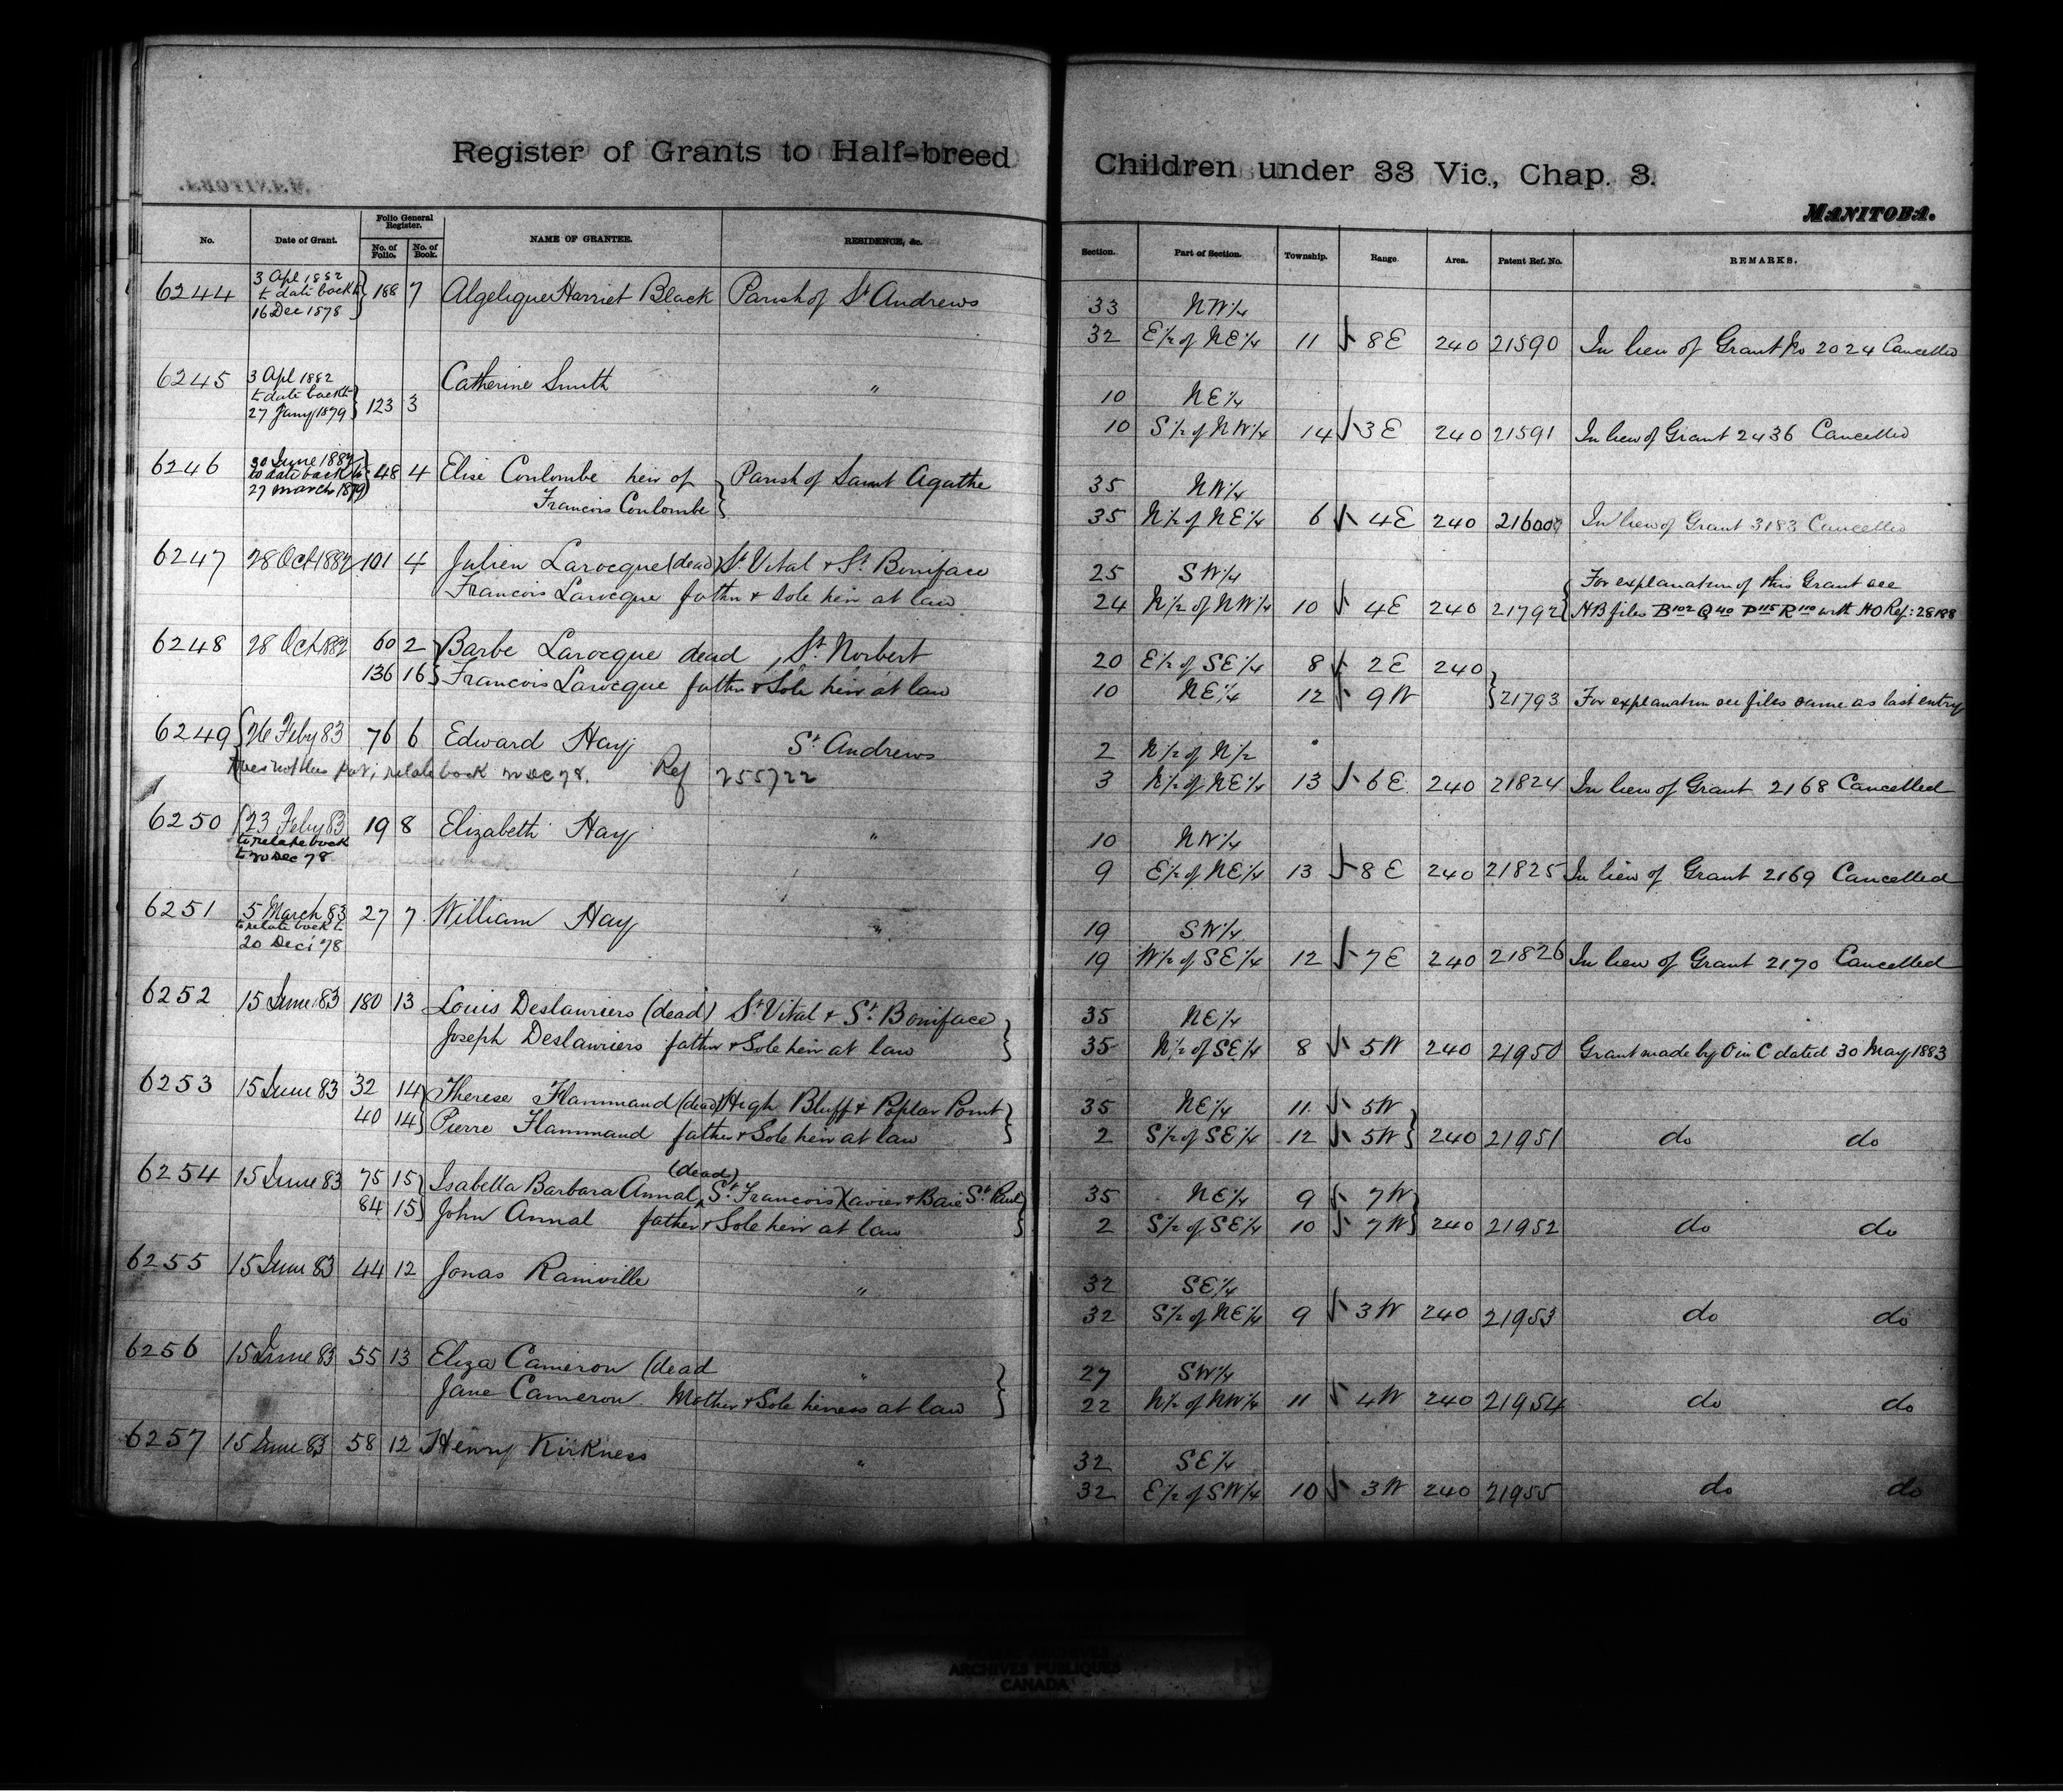 Register of Grants to Half-breed Children under 33 Vic., Chap. 3.
MANITOBA.
No. Date of Grant. Folio General Register. No. of Folio. No. of Book. NAME OF GRANTEE. RESIDENCE, &c. Section. Part of Section. Township. Range. Area. Patent Ref. No. REMARKS.
6244 3 Apl 1882 188 7 Algelique Harriet Black Parish of St Andrews 33 NW 1/4
to date back to
16 Dec 1878
32 E 1/2 of NE 1/4 11 8E 240 21590 In lieu of Grant No 2024 Cancelled
6245 3 Apl 1882 Catherine Smith "
to date back to
27 Jany 1879 123 3 10 NE 1/4
10 S 1/2 of NW 1/4 14 3E 240 21591 In lieu of Grant 2436 Cancelled
6246 30 June 1882 48 4 Elise Coulombe heir of Parish of Saint Agathe
to date back to
27 March 1879 Francois Coulombe 35 NW 1/4
35 N 1/2 of NE 1/4 6 4E 240 21600 In lieu of Grant 3183 Cancelled
6247 28 Oct 1882 101 4 Julien Larocque (dead) St Vital & St. Boniface 25 SW 1/4 For explanation of this Grant see
Francois Larocque father & Sole heir at law 24 N 1/2 of NW 1/4 10 4E 240 21792 HB files B 102 Q 40 P 115 R 110 with HO Ref: 28188
6248 28 Oct 1882 60 2 Barbe Larocque dead, St. Norbert 20 E 1/2 of SE 1/4 8 2E 240
136 16 Francois Larocque father & Sole heir at law 10 NE 1/4 12 9W 21793 For explanation see files same as last entry
6249 26 Feby 83 76 6 Edward Hay St. Andrews 2 N 1/2 of N 1/2
relate back 20 Dec 78. Ref 255722 3 N 1/2 of NE 1/4 13 6E 240 21824 In lieu of Grant 2168 Cancelled
6250 23 Feby 83 19 8 Elizabeth Hay " 10 NW 1/4
to relate back
to 20 Dec 78 9 E 1/2 of NE 1/4 13 8E 240 21825 In lieu of Grant 2169 Cancelled
6251 5 March 83 27 7 William Hay " 19 SW 1/4
to relate back to
20 Dec 78 19 W 1/2 of SE 1/4 12 7E 240 21826 In lieu of Grant 2170 Cancelled
6252 15 June 83 180 13 Louis Deslauriers (dead) St. Vital & St. Boniface 35 NE 1/4
Joseph Deslauriers father & Sole heir at law 35 N 1/2 of SE 1/4 8 5W 240 21950 Grant made by O in C dated 30 May 1883
6253 15 June 83 32 14 Therese Flammand (dead) High Bluff & Poplar Point 35 NE 1/4 11 5W
40 14 Pierre Flammand father & Sole heir at law 2 S 1/2 of SE 1/4 12 5W 240 21951 do do
6254 15 June 83 75 15 Isabella Barbara Annal (dead) St. Francois Xavier & Baie St. Paul 35 NE 1/4 9 7W
84 15 John Annal father & Sole heir at law 2 S 1/2 of SE 1/4 10 7W 240 21952 do do
6255 15 June 83 44 12 Jonas Rainville " 32 SE 1/4
32 S 1/2 of NE 1/4 9 3W 240 21953 do do
6256 15 June 83 55 13 Eliza Cameron (dead " 27 SW 1/4
Jane Cameron. Mother & Sole heiress at law 22 N 1/2 of NW 1/4 11 4W 240 21954 do do
6257 15 June 83 58 12 Henry Kirkness " 32 SE 1/4
32 E 1/2 of SW 1/4 10 3W 240 21955 do do
ARCHIVES PUBLIQUES
CANADA